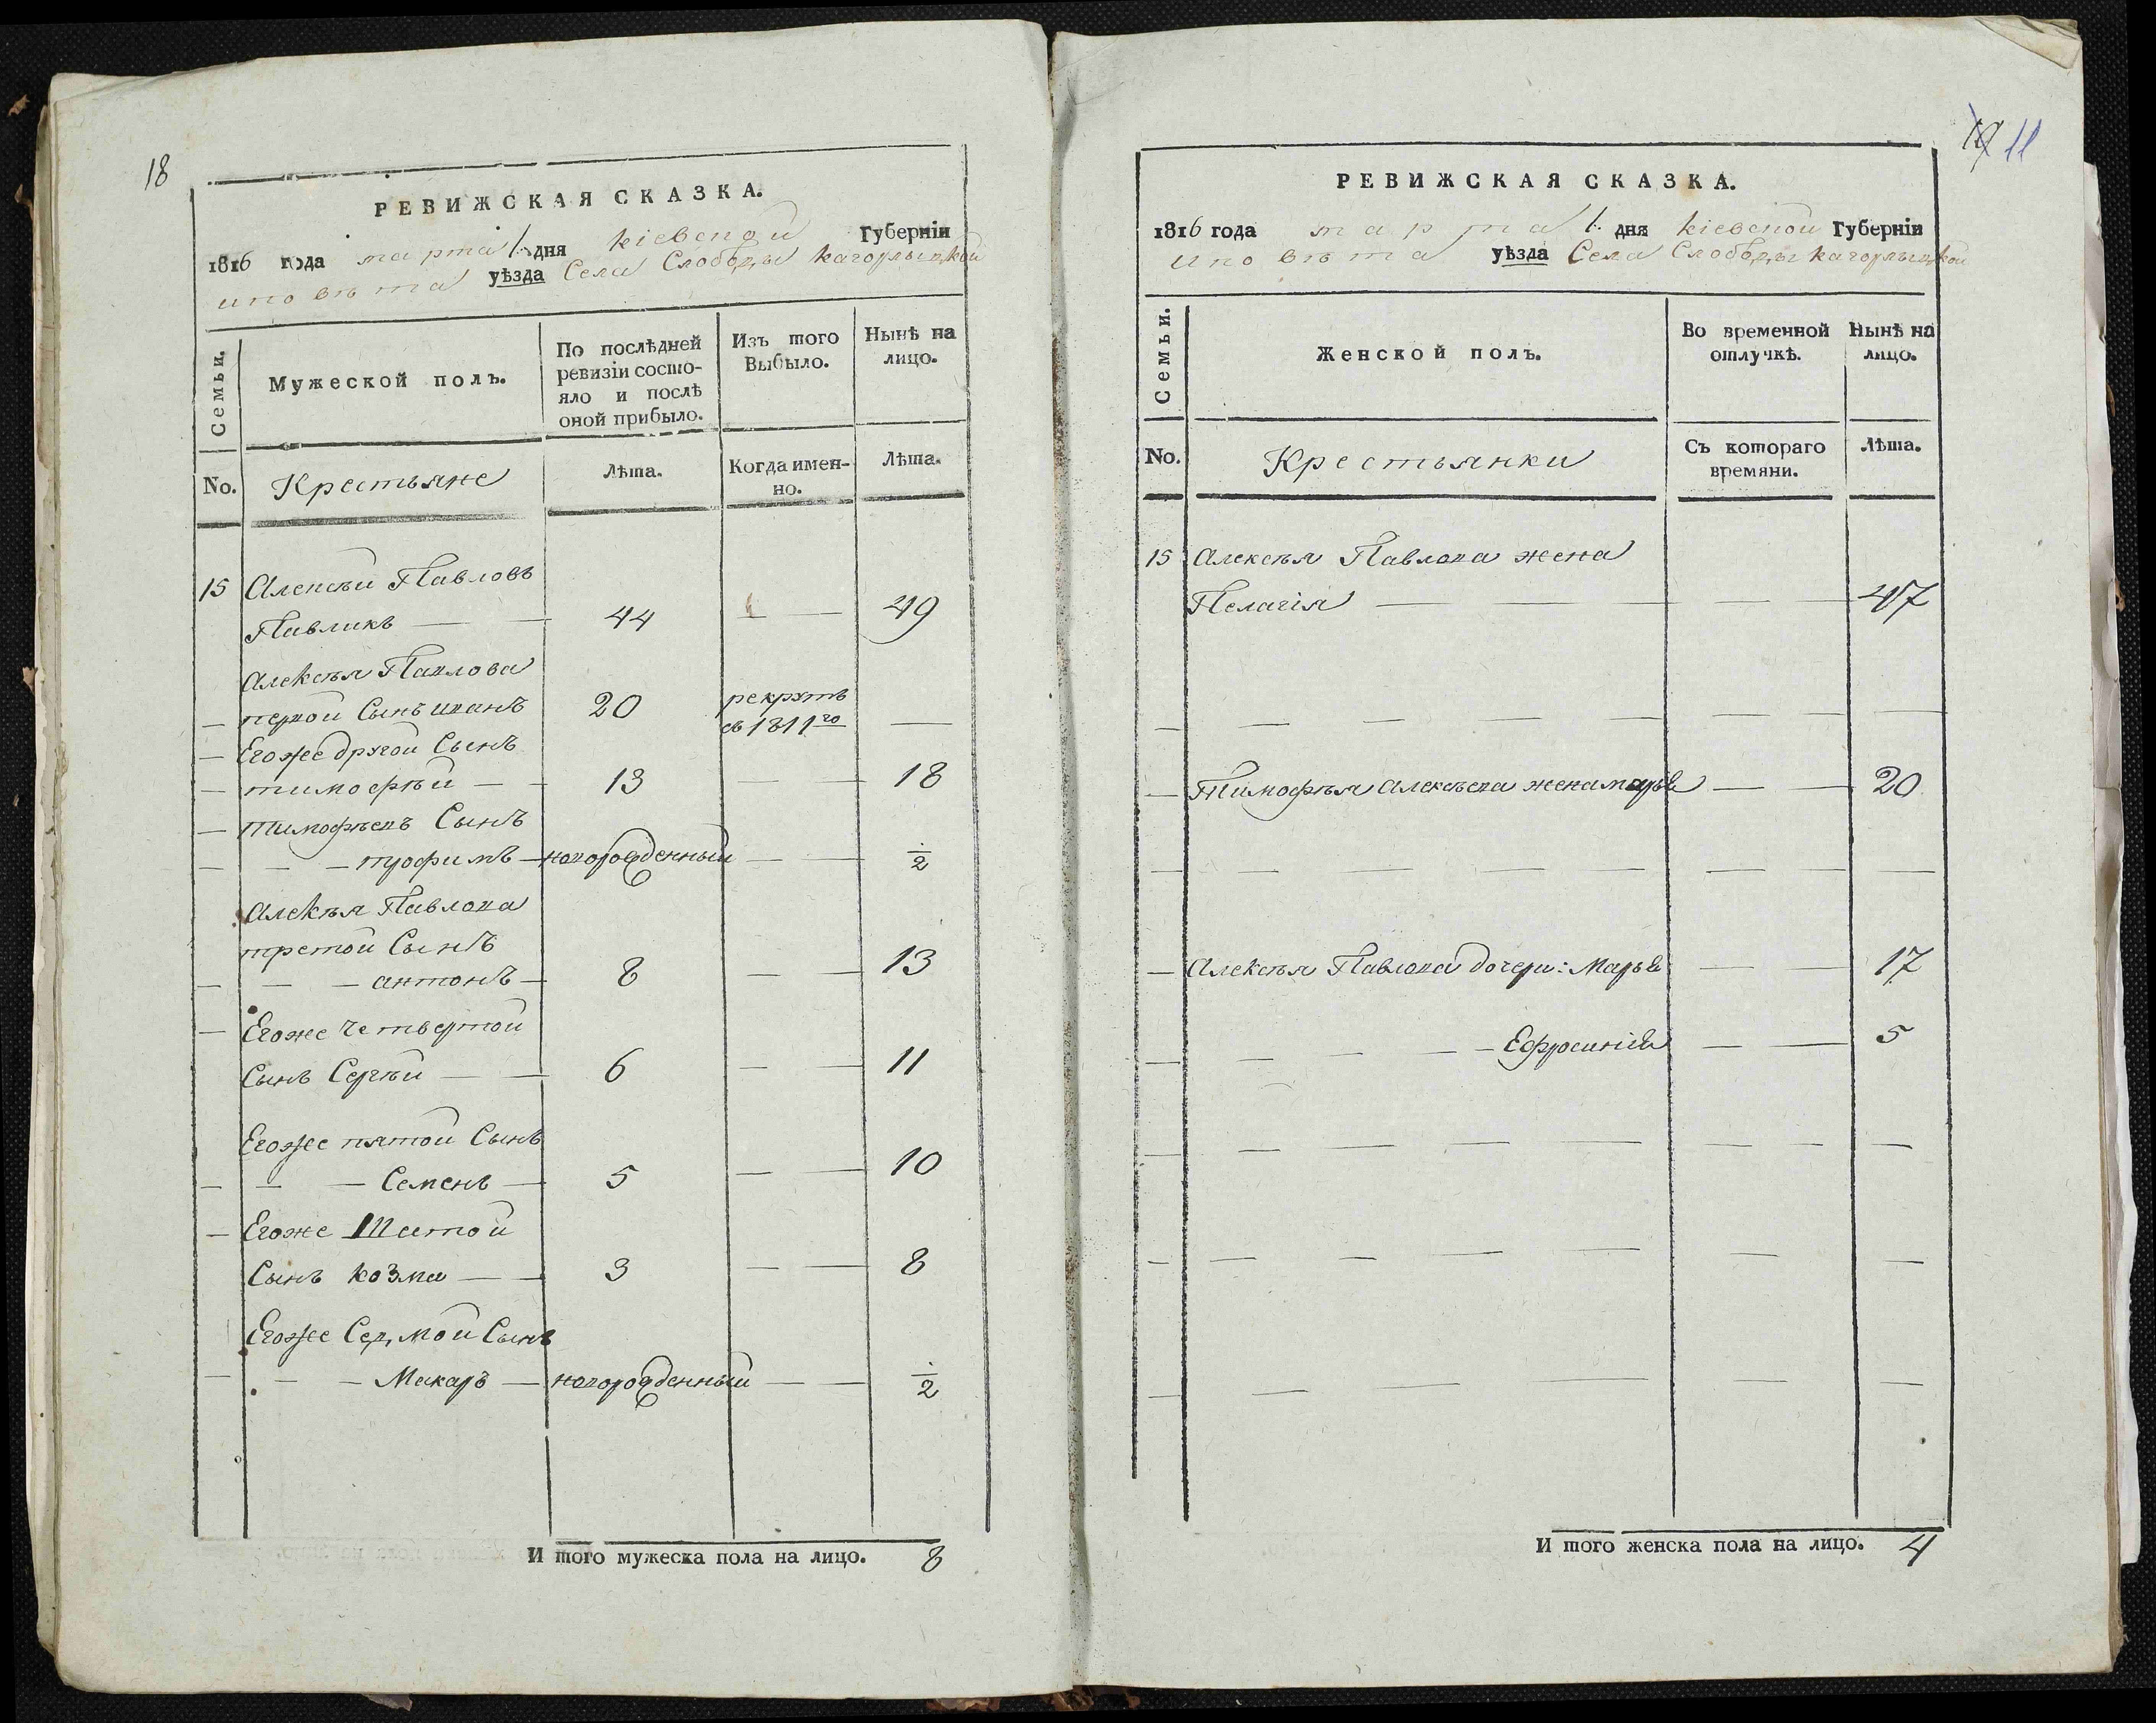 18
РЕВИЖСКАЯ СКАЗКА.
1816 года марта 1. дня Кіевской Губерніи
и повѣта уѣзда Села Слободы Кагорлыцкой
Семьи.
Мужеской полъ.
По послѣдней
ревизіи состо-
яло и послѣ
оной прибыло.
Изъ того
Выбыло.
Нынѣ на
лицо.
No.
Крестьяне
Лѣта.
Когда имен-
но.
Лѣта.
15 Алексѣй Павловъ
Павликъ — 44 — 49
Алексѣя Павлова
первой Сынъ иванъ 20 рекрутъ
въ 1811го —
Егоже другой Сынъ
тимофѣй — 13 — 18
тимофѣевъ Сынъ
трофимъ — новорожденный — ½
Алексѣя Павлова
третой Сынъ
антонъ — 8 — 13
Егоже Четвертой
Сынъ Сергѣй — 6 — 11
Егоже пятой Сынъ
Семенъ — 5 — 10
Егоже Шстой
Сынъ козма — 3 — 8
Егоже Седмой Сынъ
Макаръ — новорожденный — ½
И того мужеска пола на лицо. 8
11
РЕВИЖСКАЯ СКАЗКА.
1816 года марта 1. дня Кіевской Губерніи
и повѣта уѣзда Села Слободы Кагорлыцкой
Семьи.
Женской полъ.
Во временной
отлучкѣ.
Нынѣ на
лицо.
No.
Крестьянки
Съ котораго
времяни.
Лѣта.
15 Алексѣя Павлова жена
Пелагія — 47
Тимофѣя Алексѣева жена марья — 20
Алексѣя Павлова дочери: Марья — 17
Ефросинія — 5
И того женска пола на лицо. 4